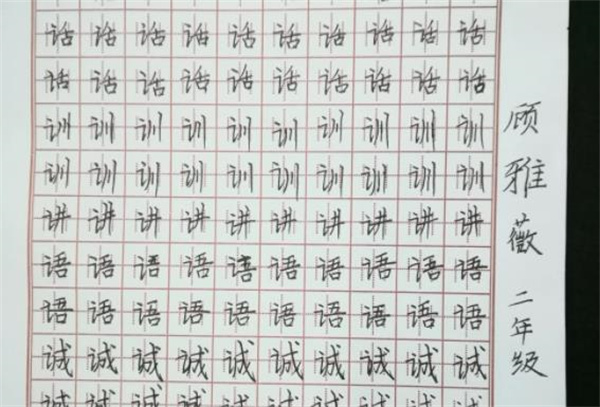 话话话话话话话话话话
话话话话话话话话话话
训训训训训训训训训训
训训训训训训训训训训
讲讲讲讲讲讲讲讲讲讲
语语语语语语语语语语
语语语语语语语语语语
诚诚诚诚诚诚诚诚诚诚
顾雅薇 二年级